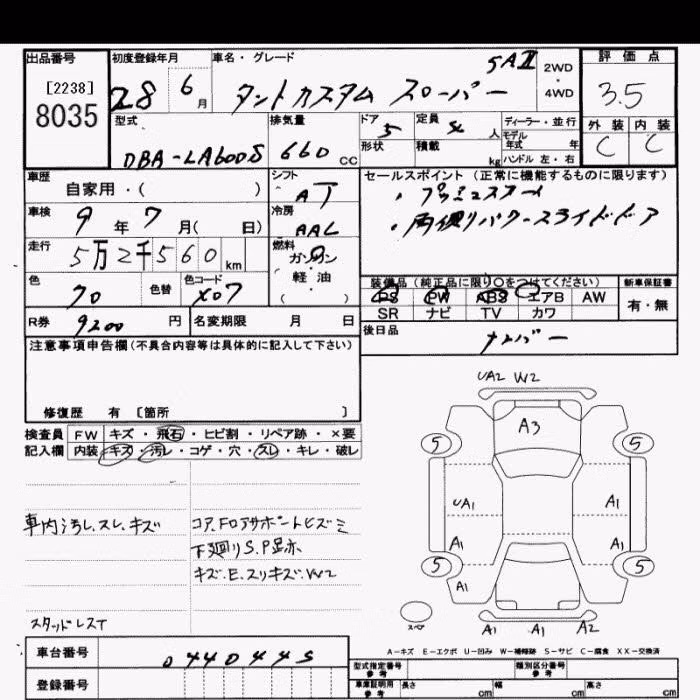 出品番号 初度登録年月 車名・グレード 5AⅡ 2WD・4WD 評価点
[2238] 8035 28 6月 タントカスタム スローパー 3.5
型式 排気量 ドア 5 定員 人 ディーラー・並行 外装 内装
DBA-LA600S 660cc 形状 積載 kg モデル年式 年 C C
ハンドル 左・右
車歴 シフト セールスポイント (正常に機能するものに限ります)
自家用・( ) AT ・プッシュスタート
車検 冷房 ・両側パワースライドドア
9年7月( 日) AAC
走行 燃料
5万2千560km ガソリン
軽油
( )
色 色替 色コード 装備品 (純正品に限り○をつけてください) 新車保証書
70 X07 PS PW ABS エアB AW 有・無
R券 9200円 名変期限 月 日 SR ナビ TV カワ
注意事項申告欄(不具合内容等は具体的に記入して下さい) 後日品 ナンバー
修復歴 有 〔箇所 〕
検査員 FW キズ・飛石・ヒビ割・リペア跡・×要
記入欄 内装 キズ・汚レ・コゲ・穴・スレ・キレ・破レ
UA2 W2
A3
5 5
UA1 A1
A1 A1
5 5
A1
A1 A1 A2
車内汚レ.スレ.キズ コア.Fロアサポートヒズミ
下廻りS.P足赤
キズ.E.スリキズ.W2
スタッドレスT
A-キズ E-エクボ U-凹み W-補修跡 S-サビ C-腐食 XX-交換済
車台番号 0440445 型式指定番号 参考 類別区分番号 参考
登録番号 車庫証明用 参考 長さ cm 幅 cm 高さ cm